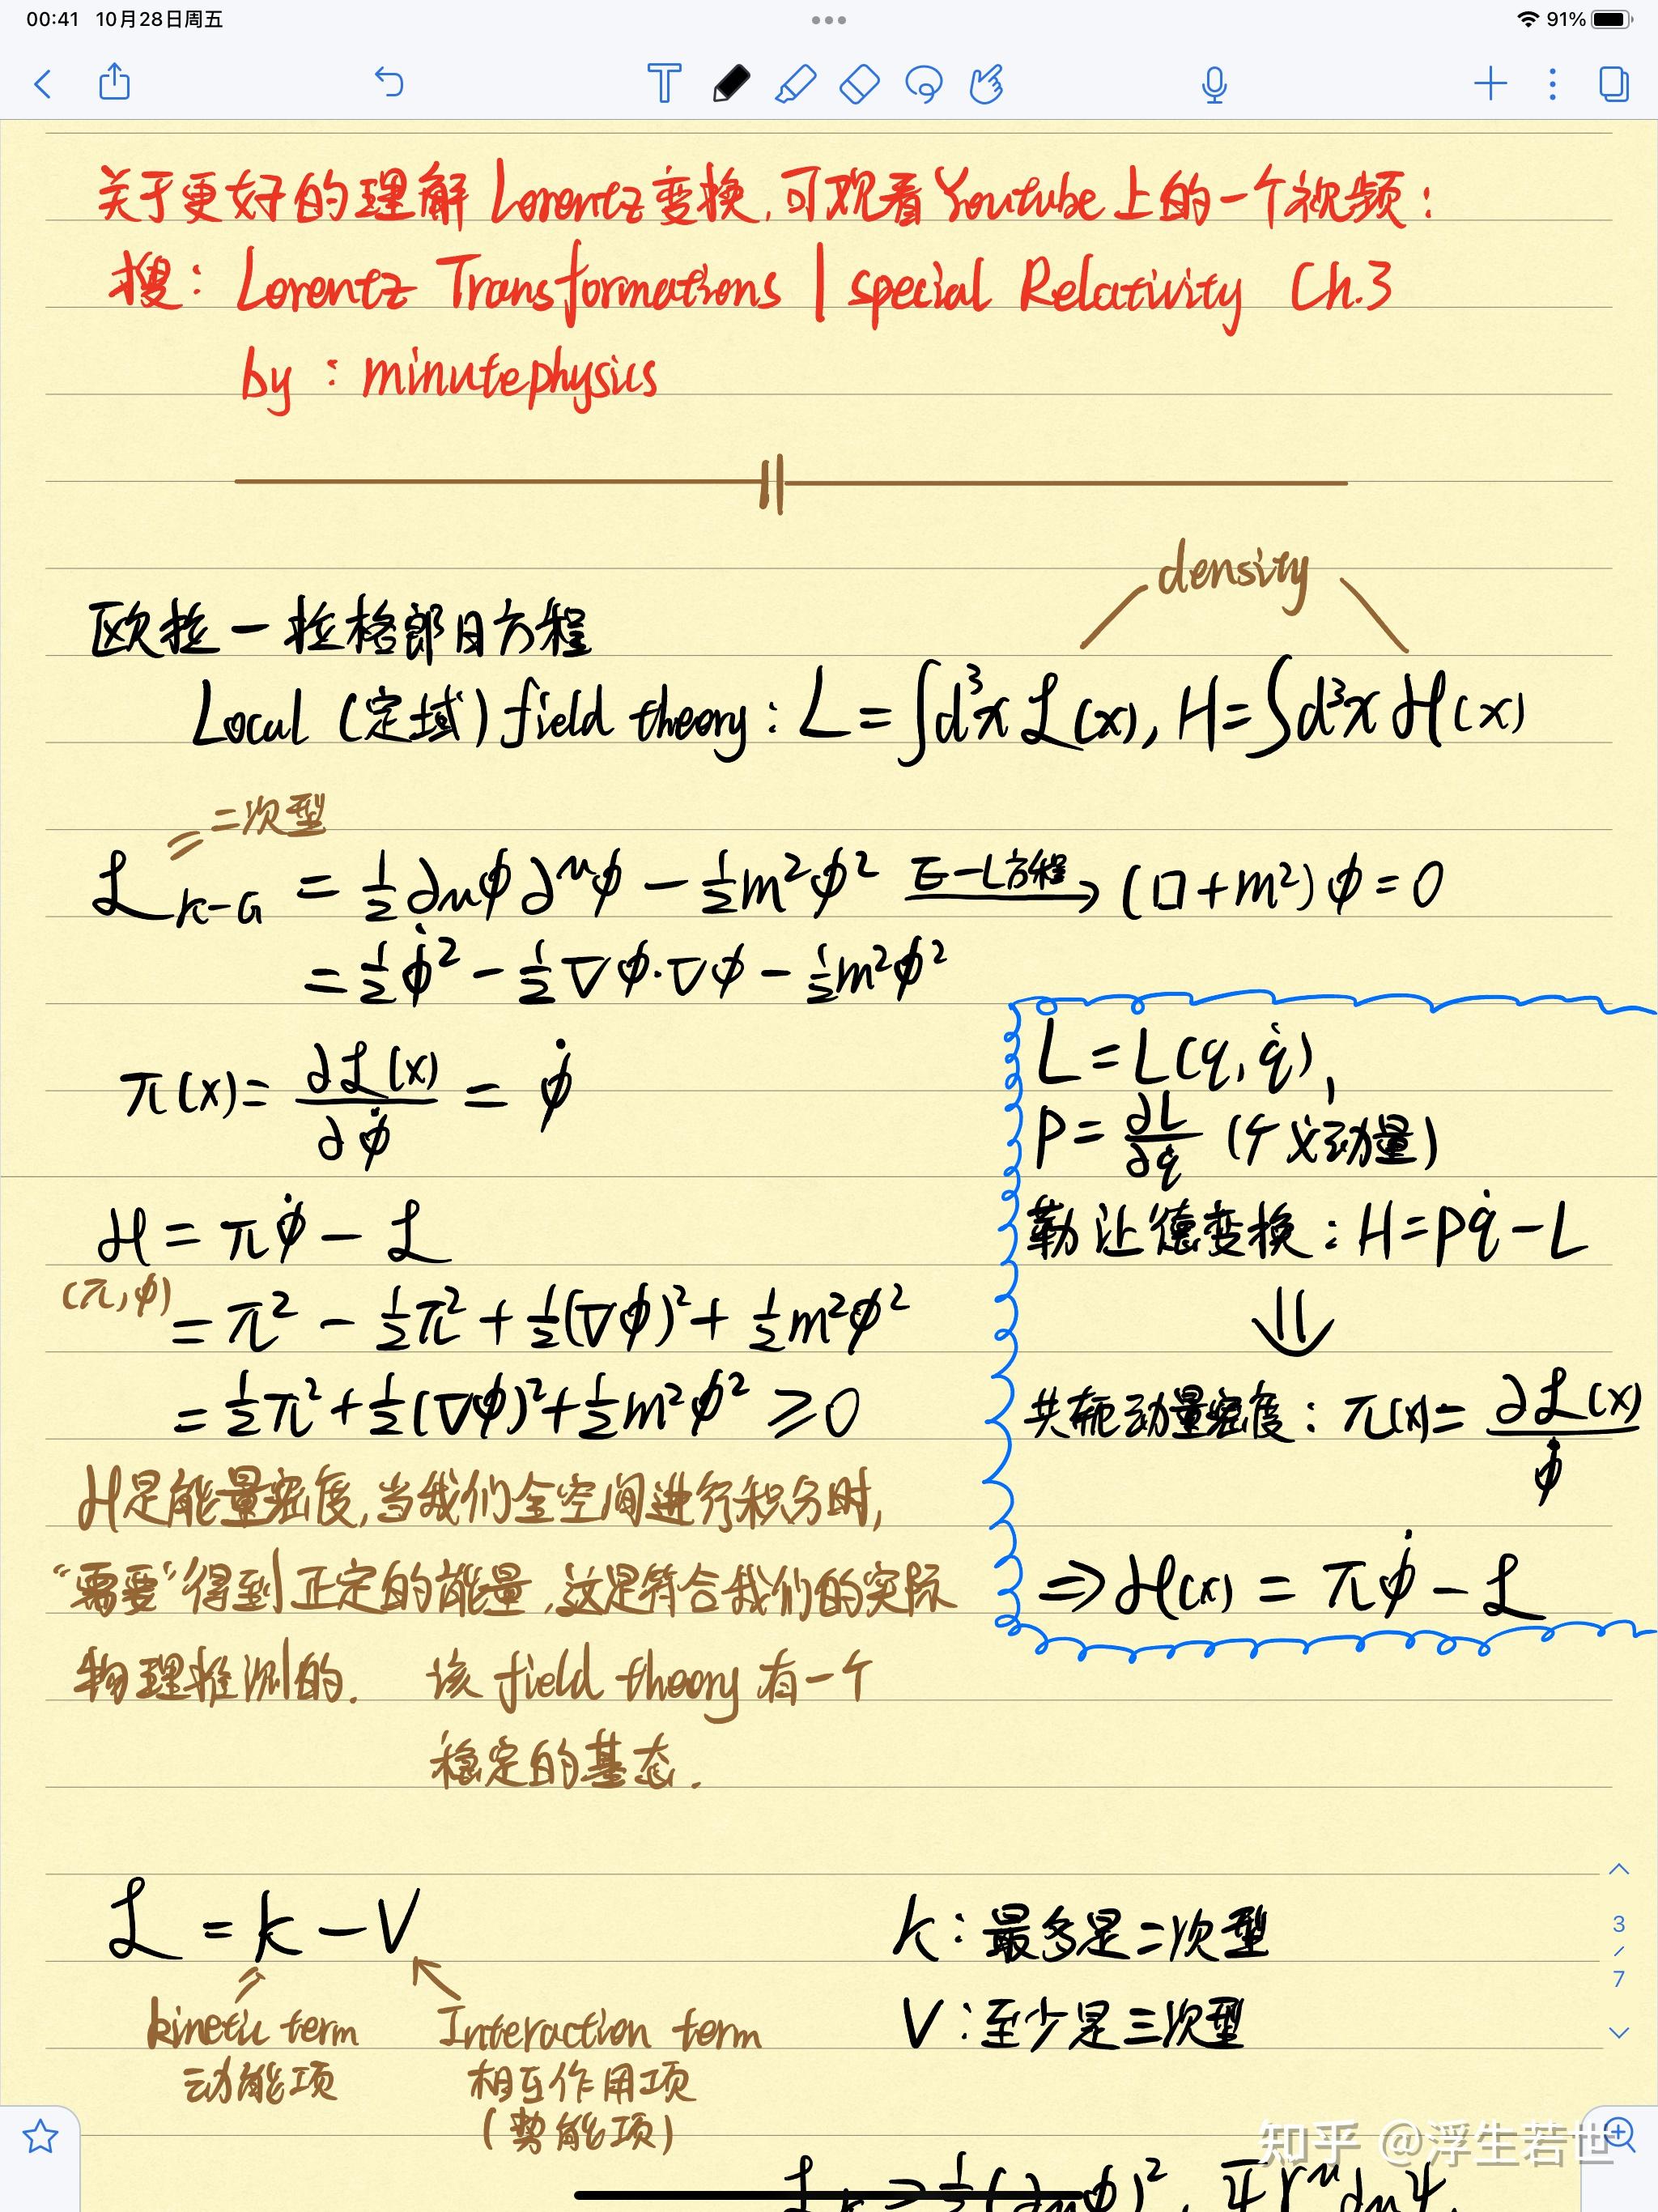 00:41 10月28日周五
91%
关于更好的理解 Lorentz变换,可观看Youtube上的一个视频:
搜: Lorentz Transformations | special Relativity Ch.3
by : minutephysics
density
欧拉-拉格郎日方程
Local (定域) field theory : L = ∫d³x ℒ(x), H = ∫d³x ℋ(x)
二次型
ℒ_K-G = ½ ∂_μϕ ∂^μϕ − ½m²ϕ² E-L方程→ (□+m²)ϕ = 0
= ½ϕ̇² − ½∇ϕ·∇ϕ − ½m²ϕ²
π(x) = ∂ℒ(x)/∂ϕ̇ = ϕ̇
ℋ = πϕ̇ − ℒ
(π,ϕ)
= π² − ½π² + ½(∇ϕ)² + ½m²ϕ²
= ½π² + ½(∇ϕ)² + ½m²ϕ² ⩾ 0
ℋ是能量密度,当我们全空间进行积分时,
“需要”得到正定的能量,这是符合我们的实际
物理推测的. 该 field theory 有一个
稳定的基态.
L = L(q, q̇),
P = ∂L/∂q̇ (广义动量)
勒让德变换: H = pq̇ − L
⇓
共轭动量密度: π(x) = ∂ℒ(x)/ϕ̇
⇒ ℋ(x) = πϕ̇ − ℒ
ℒ = k − V
kinetic term
动能项
Interaction term
相互作用项
(势能项)
K : 最多是二次型
V : 至少是三次型
3
/
7
知乎 @浮生若世
ℒ_k ⊃ ½(∂_μϕ)², ψ̄γ^μ∂_μψ,